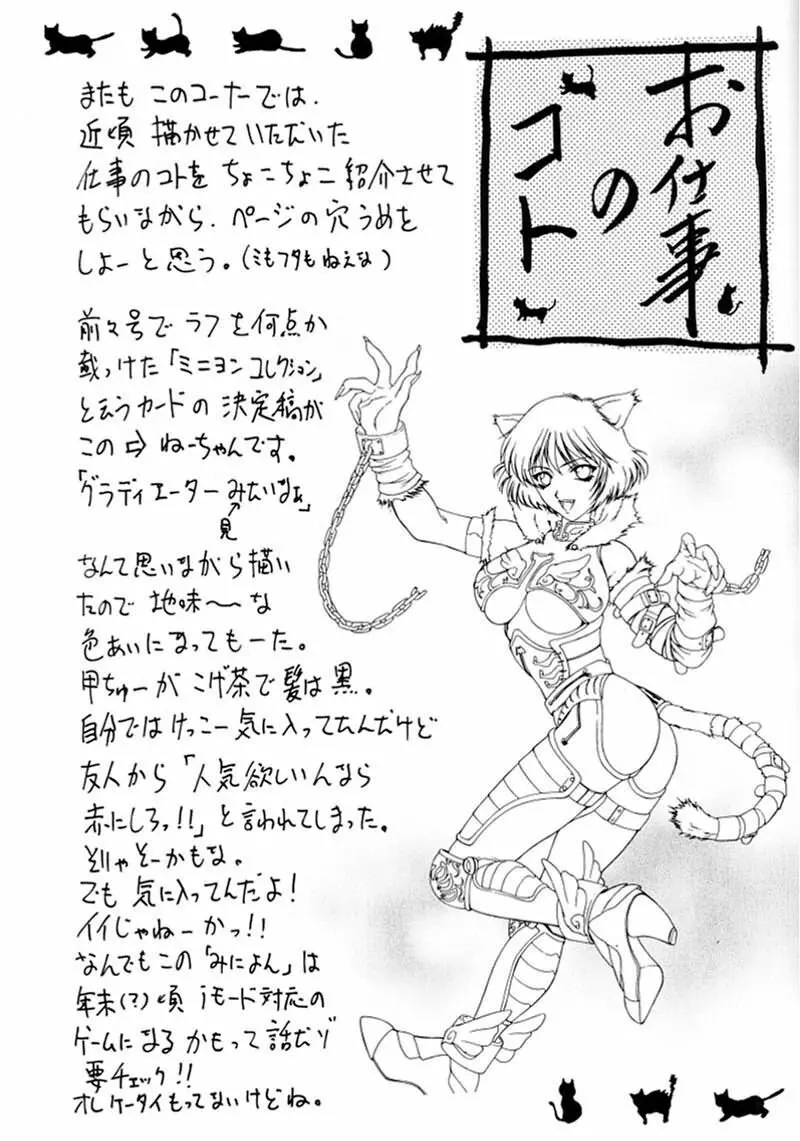 お仕事
の
コト
またも このコーナーでは、
近頃 描かせていただいた
仕事のコトを ちょこちょこ 紹介させて
もらいながら、ページの穴うめを
しよーと思う。(ミもフタもねえな)
前々号で ラフを何点か
載っけた「ミニヨンコレクション」
と云うカードの 決定稿が
この⇨ ねーちゃんです。
「グラディエーターみたいなぁ」
見
なんて思いながら描い
たので 地味〜〜な
色あいになってもーた。
甲ちゅーが こげ茶で髪は黒。
自分ではけっこー気に入ってたんだけど
友人から「人気欲しいんなら
赤にしろっ!!」と言われてしまった。
そりゃそーかもな。
でも 気に入ってんだよ!
イイじゃねーかっ!!
なんでもこの「みによん」は
年末(?)頃 iモード対応の
ゲームになるかもって話だゾ
要チェック!!
オレケータイもってないけどね。